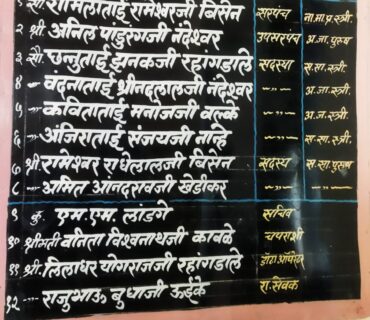 सौ. शामलाताई रामेश्वरजी बिसेन सरपंच ना.मा.प्र.स्त्री.
२ श्री. अनिल पाडुरंगजी नंदेश्वर उपसरपंच अ.जा. पुरुष
३ सौ. छन्नुताई झनकजी रहांगडाले सदस्या स.सा.स्त्री.
४ -"- वंदनाताई श्रीनंदलालजी नंदेश्वर -"- अ.जा.स्त्री.
५ -"- कविताताई मनोजजी वल्के -"- अ.ज.स्त्री.
६ -"- अंजिराताई संजयजी नाहे -"- स.सा.स्त्री.
७ श्री. रामेश्वर राधेलालजी बिसेन सदस्य स.सा.पुरुष
८ -"- अमित आनंदरावजी खेडीकर -"- -"-
९ कु. एम.एम. लांडगे सचिव
१० श्रीमती वनिता विश्वनाथजी कावळे चपराशी
११ श्री. लिलाधर योगराजजी रहांगडाले डाटा ऑपरेटर
१२ -"- राजुभाऊ बुधाजी ऊईके रो.सेवक